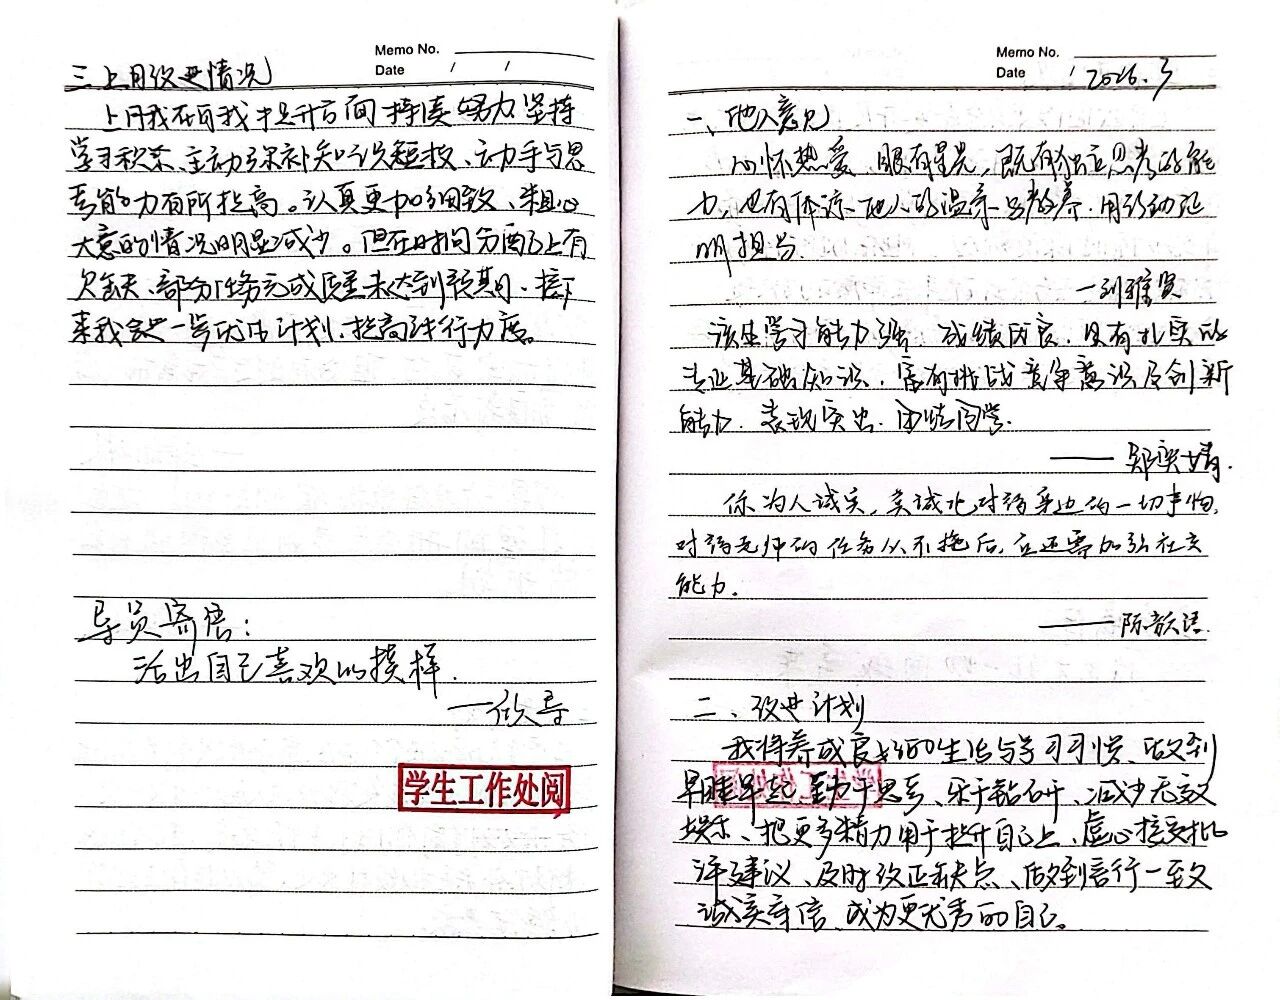 Memo No.
Date / /
三上月改进情况
上月我在自我提升方面持续努力,坚持
学习积累、主动弥补知识短板、动手与思
考能力有所提高。认真更加细致、粗心
大意的情况明显减少。但在时间分配上有
欠缺、部分任务完成质量未达到预期、接下
来我会进一步优化计划,提高执行力度。
导员寄语:
活出自己喜欢的模样.
—欣导
学生工作处阅
Memo No.
Date / 2026.3
一、他人意见
心怀热爱,眼有星光,既有独立思考的能
力,也有体谅他人的温柔与教养,用行动证
明担当.
—刘雅贤
该生学习能力强,成绩优良,具有扎实的
专业基础知识,富有挑战竞争意识及创新
能力.表现突出.团结同学.
——郑奕婧.
你为人诚实,真诚地对待身边的一切事物,
对待老师的任务从不拖后,应还需加强社交
能力.
——陈韵语.
二、改进计划
我将养成良好的生活与学习习惯、做到
早睡早起、勤于思考、乐于钻研、减少无效
娱乐、把更多精力用于提升自己上、虚心接受批
评建议、及时改正缺点、做到言行一致
诚实守信、成为更优秀的自己。